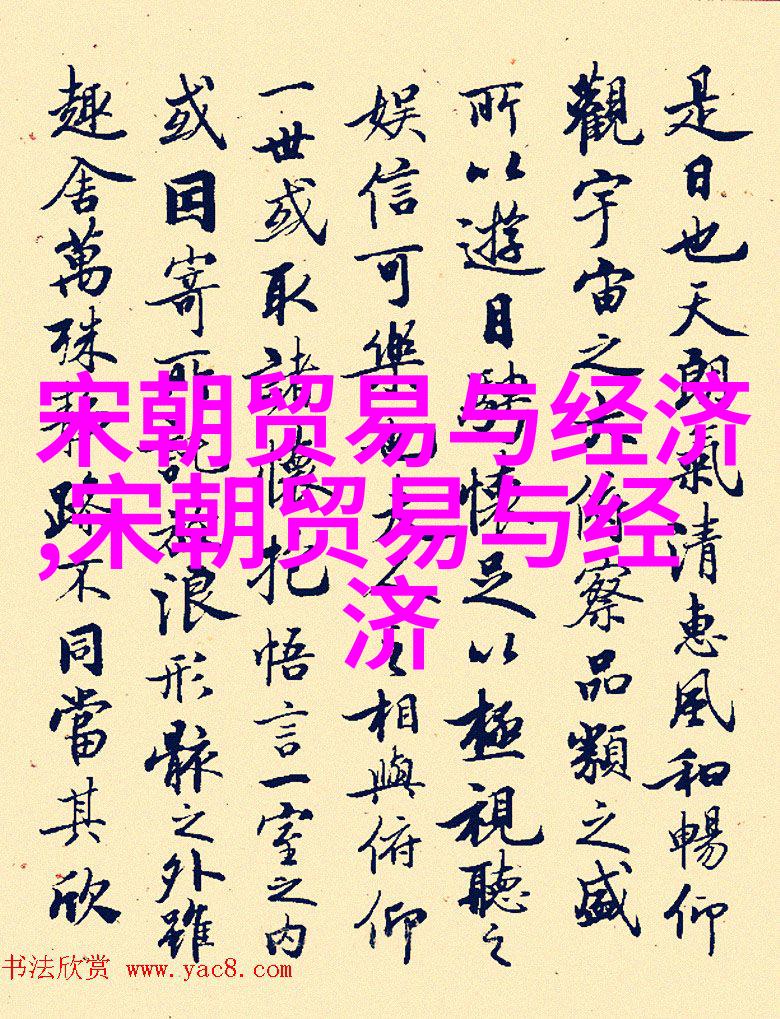 是日也天朗氣清惠風和暢仰
觀宇宙之大俯察品類之盛
所以遊目騁懷足以極視聽之
娱信可樂也夫人之相與俯仰
一世或取諸懷抱悟言一室之内
或因寄所託放浪形骸之外雖
趣舍萬殊静躁不同當其欣
宋朝贸易与经济
,宋朝贸易与经
济
书法欣赏 www.yac8.com